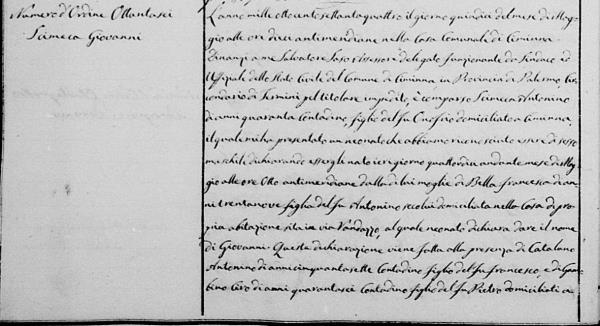 Numero d'Ordine Ottantasei
Scimeca Giovanni
L'anno mille ottocento settantaquattro il giorno quindici del mese di Mag-
gio alle ore dieci antimeridiane nella Casa Comunale di Ciminna.
Dinanzi a me Salvatore Saso Assessore delegato funzionante da Sindaco ed
Uffiziale dello Stato Civile del Comune di Ciminna in Provincia di Palermo, Cir-
condario di Termini pel titolare impedito, è comparso Scimeca Antonino
di anni quaranta Contadino, figlio del fu Onofrio domiciliato a Ciminna,
il quale mi ha presentato un neonato che abbiamo riconosciuto essere di sesso
maschile dichiarando essergli nato ieri giorno quattordici andante mese di Mag-
gio alle ore Otto antimeridiane dalla di lui moglie Di Bella Francesca di an-
ni trentanove figlia del fu Antonino secolui domiciliata nella Casa di pro-
pria abitazione sita in via Vandazzo, al quale neonato dichiara dare il nome
di Giovanni. Questa dichiarazione viene fatta alla presenza di Catalano
Antonino di anni cinquantasette Contadino figlio del fu Francesco, e di Gam-
bino Ciro di anni quarantasei Contadino figlio del fu Pietro domiciliati a